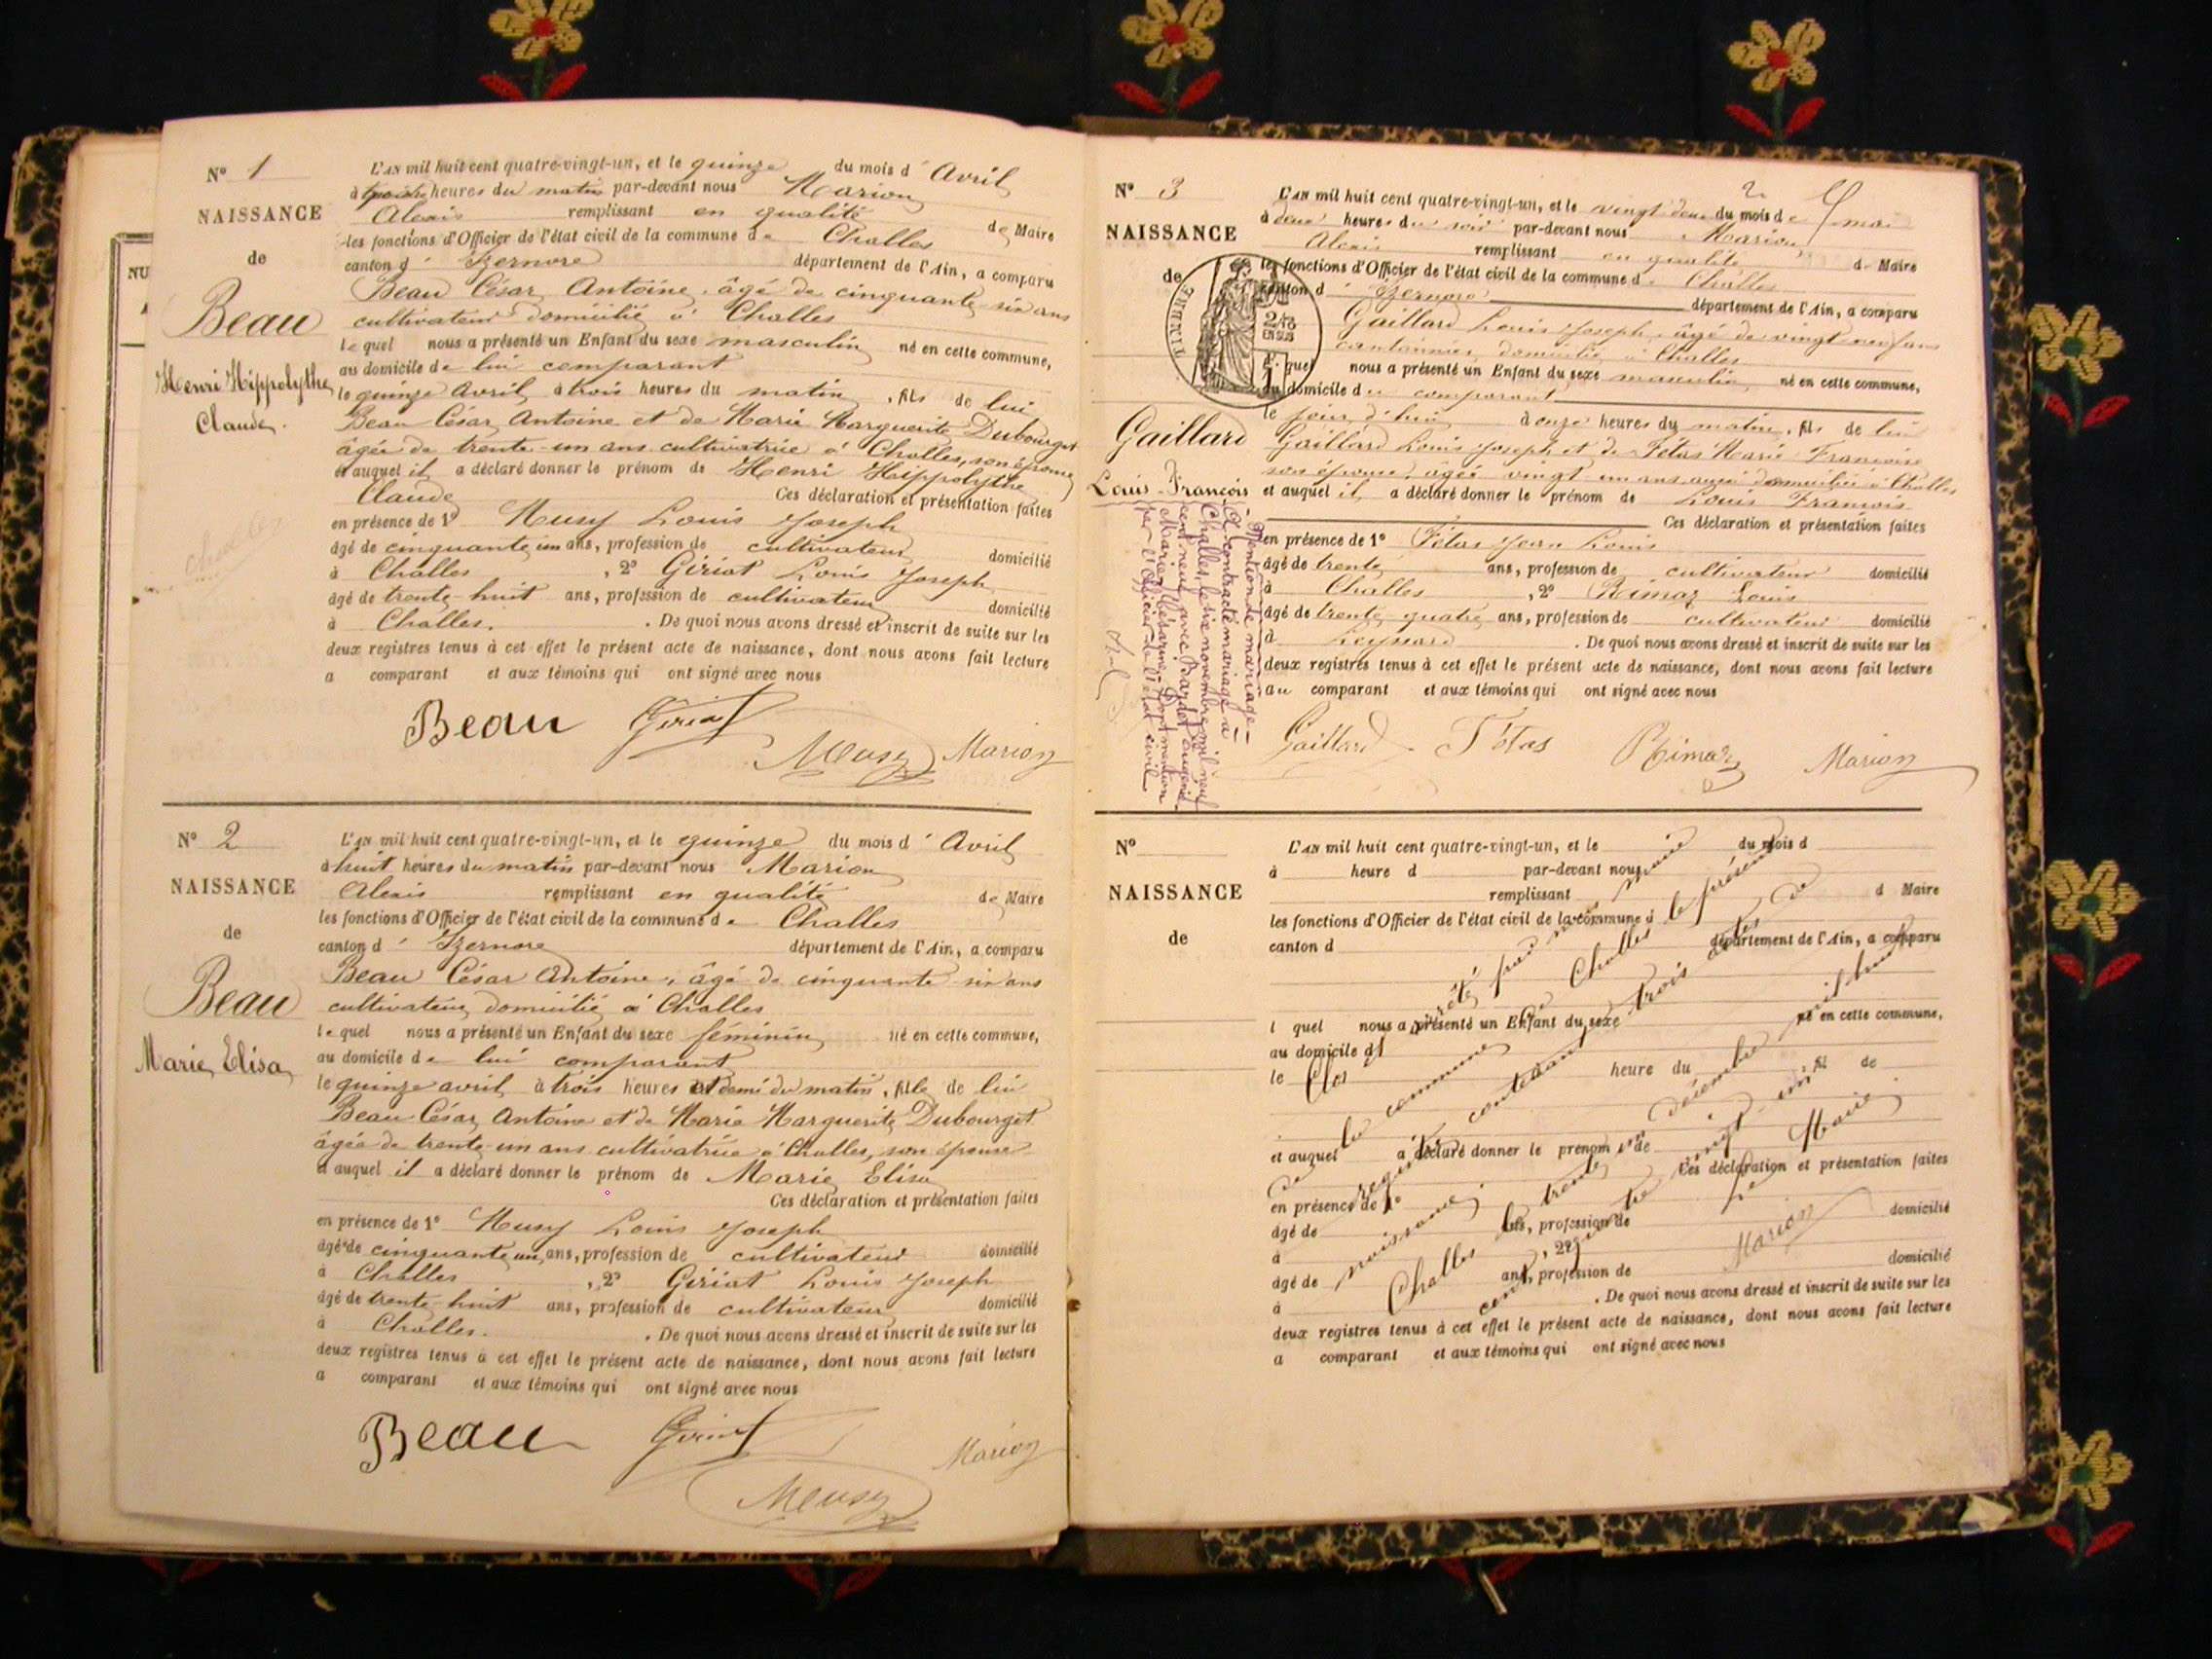 N° 1
NAISSANCE
de
Beau
Henri Hippolythe
Claude.
L'AN mil huit cent quatre-vingt-un, et le quinze du mois d' Avril
à heures du matin par-devant nous Marion
Alexis remplissant en qualité de Maire
les fonctions d'Officier de l'état civil de la commune de Challes
canton d' Izernore département de l'Ain, a comparu
Beau César Antoine, âgé de cinquante-six ans
cultivateur domicilié à Challes
lequel nous a présenté un Enfant du sexe masculin né en cette commune,
au domicile de lui comparant
le quinze Avril à trois heures du matin, fils de lui
Beau César Antoine et de Marie Marguerite Dubourget
âgée de trente-un ans cultivatrice à Challes, son épouse
et auquel il a déclaré donner le prénom de Henri Hippolythe
Claude Ces déclaration et présentation faites
en présence de 1° Musy Louis Joseph
âgé de cinquante un ans, profession de cultivateur domicilié
à Challes, 2° Gériat Louis Joseph
âgé de trente-huit ans, profession de cultivateur domicilié
à Challes. . De quoi nous avons dressé et inscrit de suite sur les
deux registres tenus à cet effet le présent acte de naissance, dont nous avons fait lecture
a comparant et aux témoins qui ont signé avec nous
Beau Geriat Musy Marion
N° 2
NAISSANCE
de
Beau
Marie Elisa
L'AN mil huit cent quatre-vingt-un, et le quinze du mois d' Avril
à huit heures du matin par-devant nous Marion
Alexis remplissant en qualité de Maire
les fonctions d'Officier de l'état civil de la commune de Challes
canton d' Izernore département de l'Ain, a comparu
Beau César Antoine, âgé de cinquante-six ans
cultivateur domicilié à Challes
lequel nous a présenté un Enfant du sexe féminin né en cette commune,
au domicile de lui comparant
le quinze avril à trois heures et demi du matin, fille de lui
Beau César Antoine et de Marie Marguerite Dubourget
âgée de trente-un ans cultivatrice à Challes, son épouse
et auquel il a déclaré donner le prénom de Marie Elisa
Ces déclaration et présentation faites
en présence de 1° Musy Louis Joseph
âgé de cinquante un ans, profession de cultivateur domicilié
à Challes, 2° Gériat Louis Joseph
âgé de trente-huit ans, profession de cultivateur domicilié
à Challes. . De quoi nous avons dressé et inscrit de suite sur les
deux registres tenus à cet effet le présent acte de naissance, dont nous avons fait lecture
a comparant et aux témoins qui ont signé avec nous
Beau Geriat Marion
Musy
2
N° 3
NAISSANCE
de
TIMBRE
Gaillard
Louis François
L'AN mil huit cent quatre-vingt-un, et le vingt deux du mois de mai
à deux heures du soir par-devant nous Marion
Alexis remplissant en qualité de Maire
les fonctions d'Officier de l'état civil de la commune de Challes
canton d' Izernore département de l'Ain, a comparu
Gaillard Louis Joseph, âgé de vingt neuf ans
cantonnier, domicilié à Challes
lequel nous a présenté un Enfant du sexe masculin né en cette commune,
au domicile du comparant
le jour d'hui à onze heures du matin, fils de lui
Gaillard Louis Joseph et de Fétas Marie Françoise
son épouse, âgée vingt un ans aussi domiciliée à Challes
et auquel il a déclaré donner le prénom de Louis François
Ces déclaration et présentation faites
en présence de 1° Fétas Jean Louis
âgé de trente ans, profession de cultivateur domicilié
à Challes, 2° Rimaz Louis
âgé de trente quatre ans, profession de cultivateur domicilié
à Leyssard . De quoi nous avons dressé et inscrit de suite sur les
deux registres tenus à cet effet le présent acte de naissance, dont nous avons fait lecture
au comparant et aux témoins qui ont signé avec nous
Gaillard Fétas Rimaz Marion
Mention de mariage
A contracté mariage à
Challes, le six novembre mil neuf
cent neuf avec Bardet Eugénie
Marie Césarine. Dont mention
par l'officier de l'état civil
N°
NAISSANCE
de
L'AN mil huit cent quatre-vingt-un, et le du mois d
à heure d par-devant nous
remplissant d Maire
les fonctions d'Officier de l'état civil de la commune d
canton d département de l'Ain, a comparu
l quel nous a présenté un Enfant du sexe né en cette commune,
au domicile d
le heure du fil de
et auquel a déclaré donner le prénom de
Ces déclaration et présentation faites
en présence de 1°
âgé de ans, profession de domicilié
à , 2°
âgé de ans, profession de domicilié
à . De quoi nous avons dressé et inscrit de suite sur les
deux registres tenus à cet effet le présent acte de naissance, dont nous avons fait lecture
a comparant et aux témoins qui ont signé avec nous
Clos et arrêté par nous maire
de la commune de Challes le présent
registre contenant trois actes de
naissance
Challes le trente un décembre mil huit
cent quatre vingt un
Le Maire
Marion